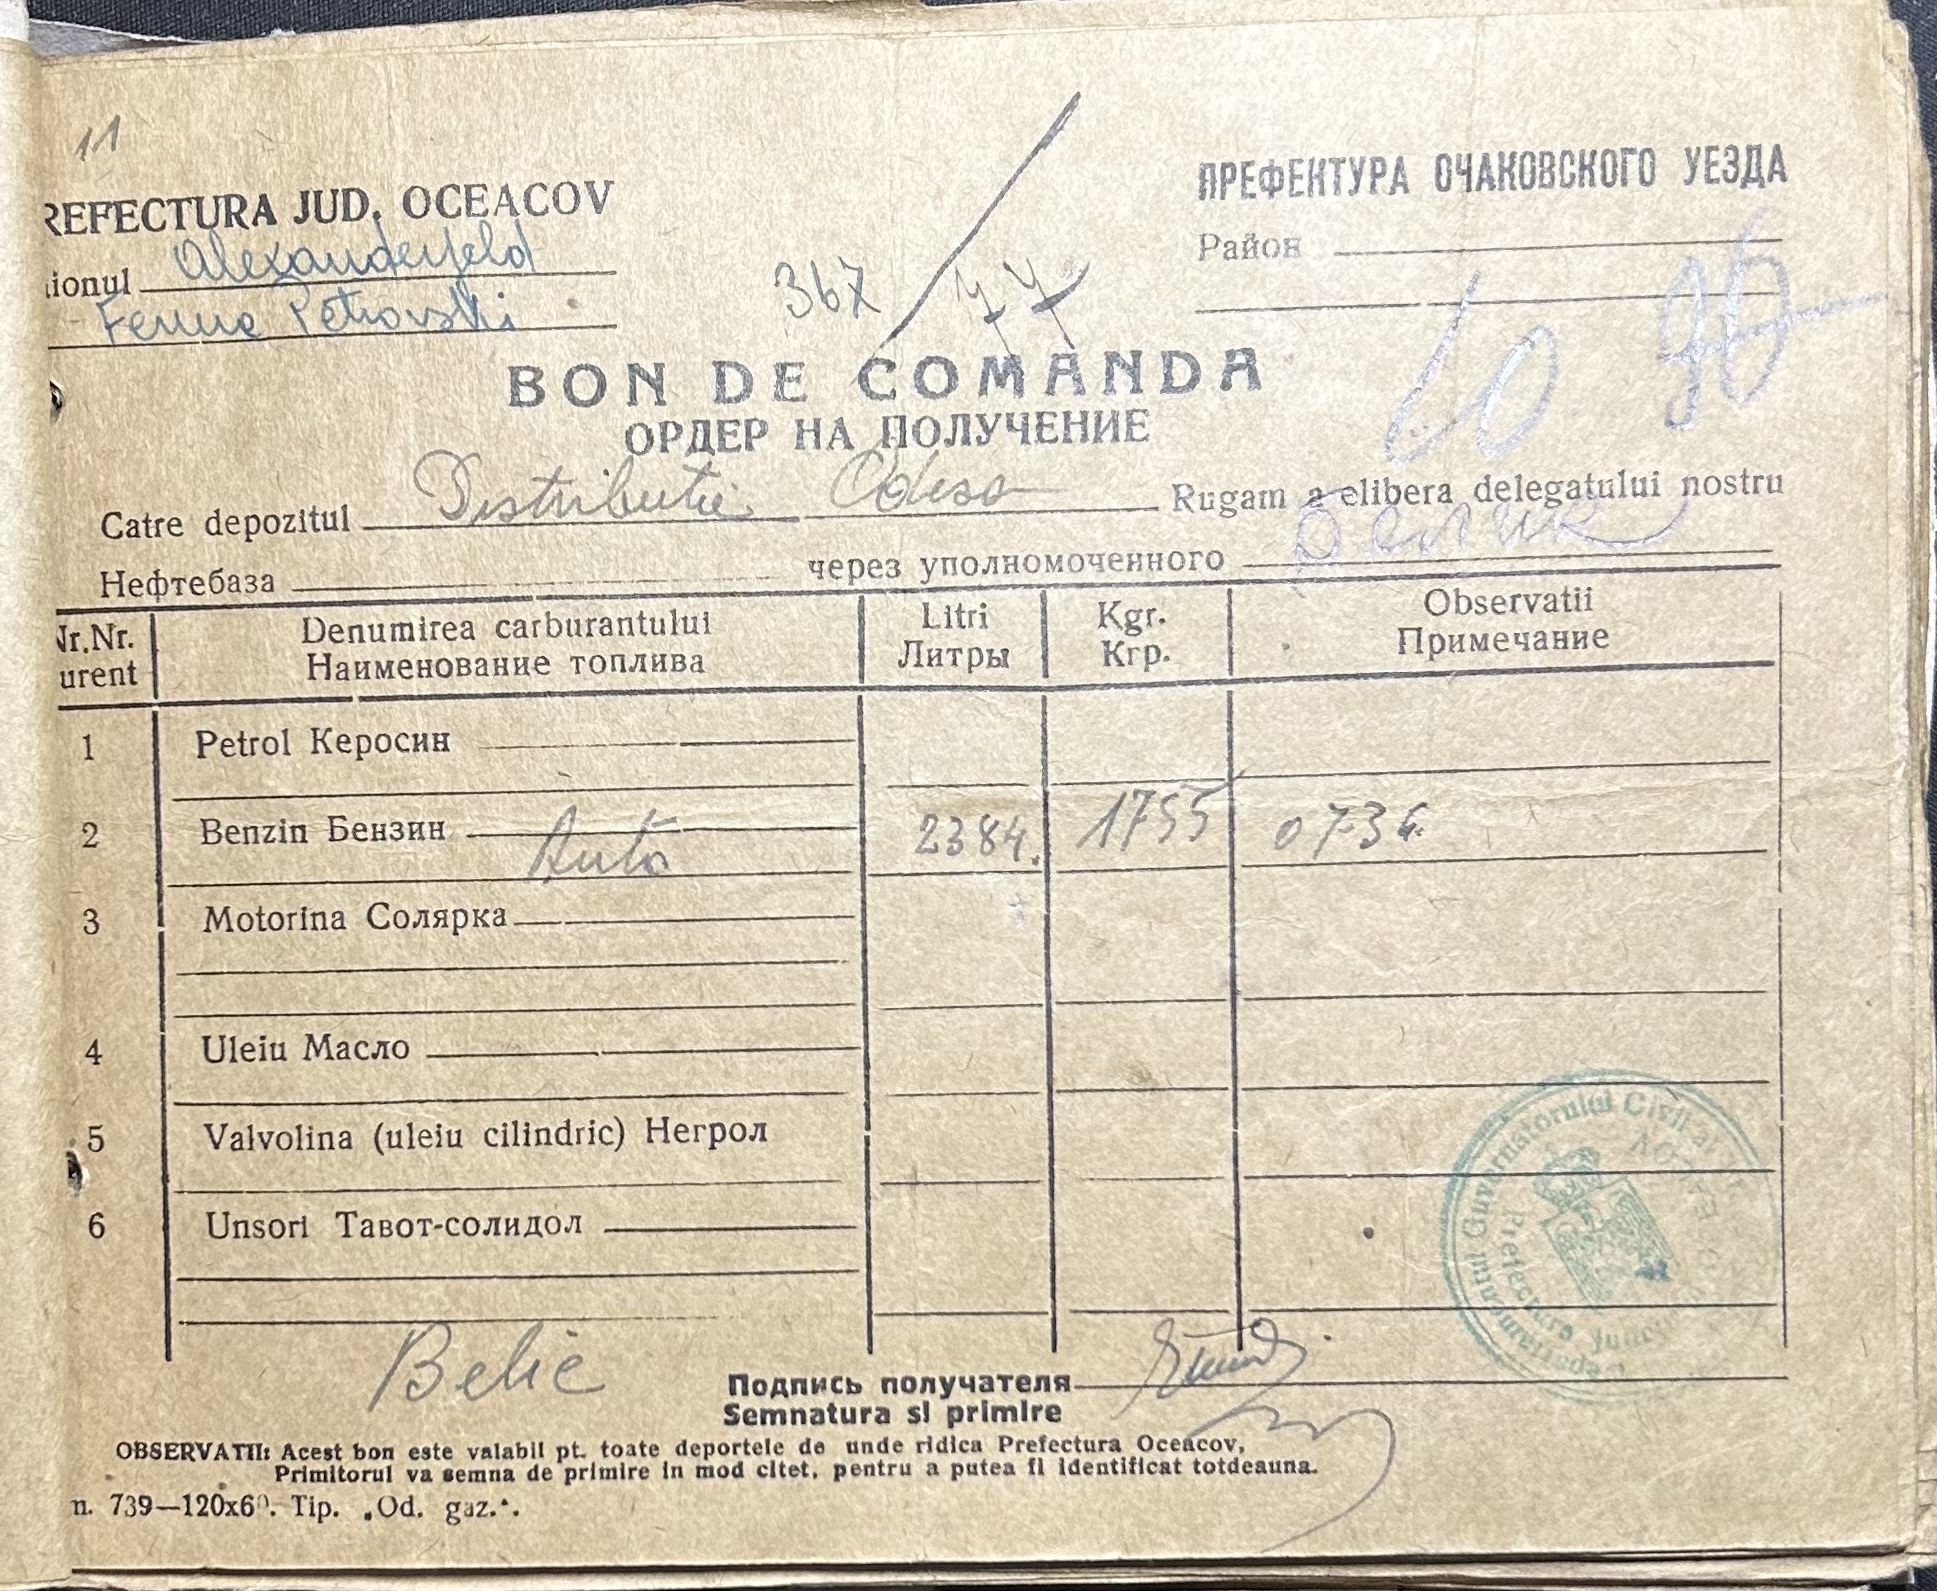 11
REFECTURA JUD. OCEACOV
ПРЕФЕКТУРА ОЧАКОВСКОГО УЕЗДА
ionul Alexanderfeld
Район
Ferma Petrovski
367
BON DE COMANDA
ОРДЕР НА ПОЛУЧЕНИЕ
Catre depozitul Distributie Odesa Rugam a elibera delegatului nostru
Нефтебаза через уполномоченного Белик
Nr.Nr. Denumirea carburantului Litri Kgr. Observatii
urent Наименование топлива Литры Кгр. Примечание
1 Petrol Керосин
2 Benzin Бензин Auto 2384. 1755 0734
3 Motorina Солярка
4 Uleiu Масло
5 Valvolina (uleiu cilindric) Негрол
6 Unsori Тавот-солидол
Guvernatorului Civil al
Prefectura
Belic
Подпись получателя
Semnatura si primire
OBSERVATII: Acest bon este valabil pt. toate deportele de unde ridica Prefectura Oceacov,
Primitorul va semna de primire in mod citet, pentru a putea fi identificat totdeauna.
n. 739—120x60. Tip. „Od. gaz.".